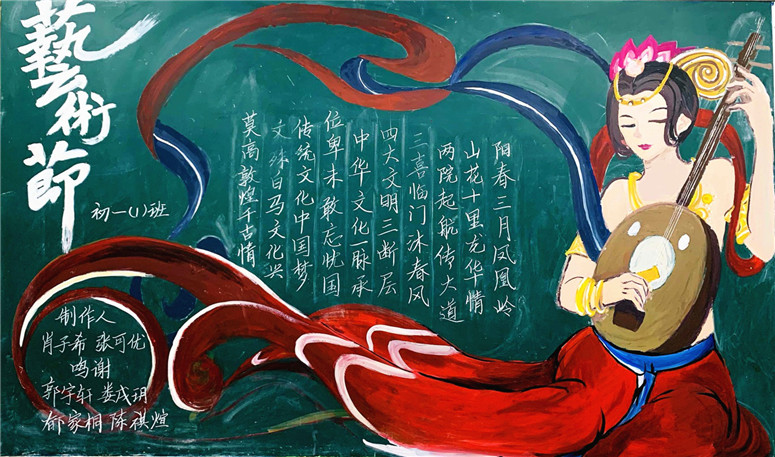 藝術節
初一(1)班
阳春三月凤凰岭
山花十里华情
两院起航传大道
三喜临门沐春风
四大文明三断层
中华文化一脉承
位卑未敢忘忧国
传统文化中国梦
文殊白马文化兴
莫高敦煌千古情
制作人
肖子希 张可优
鸣谢
郭宇轩 娄成玥
家桐 陈祺煊